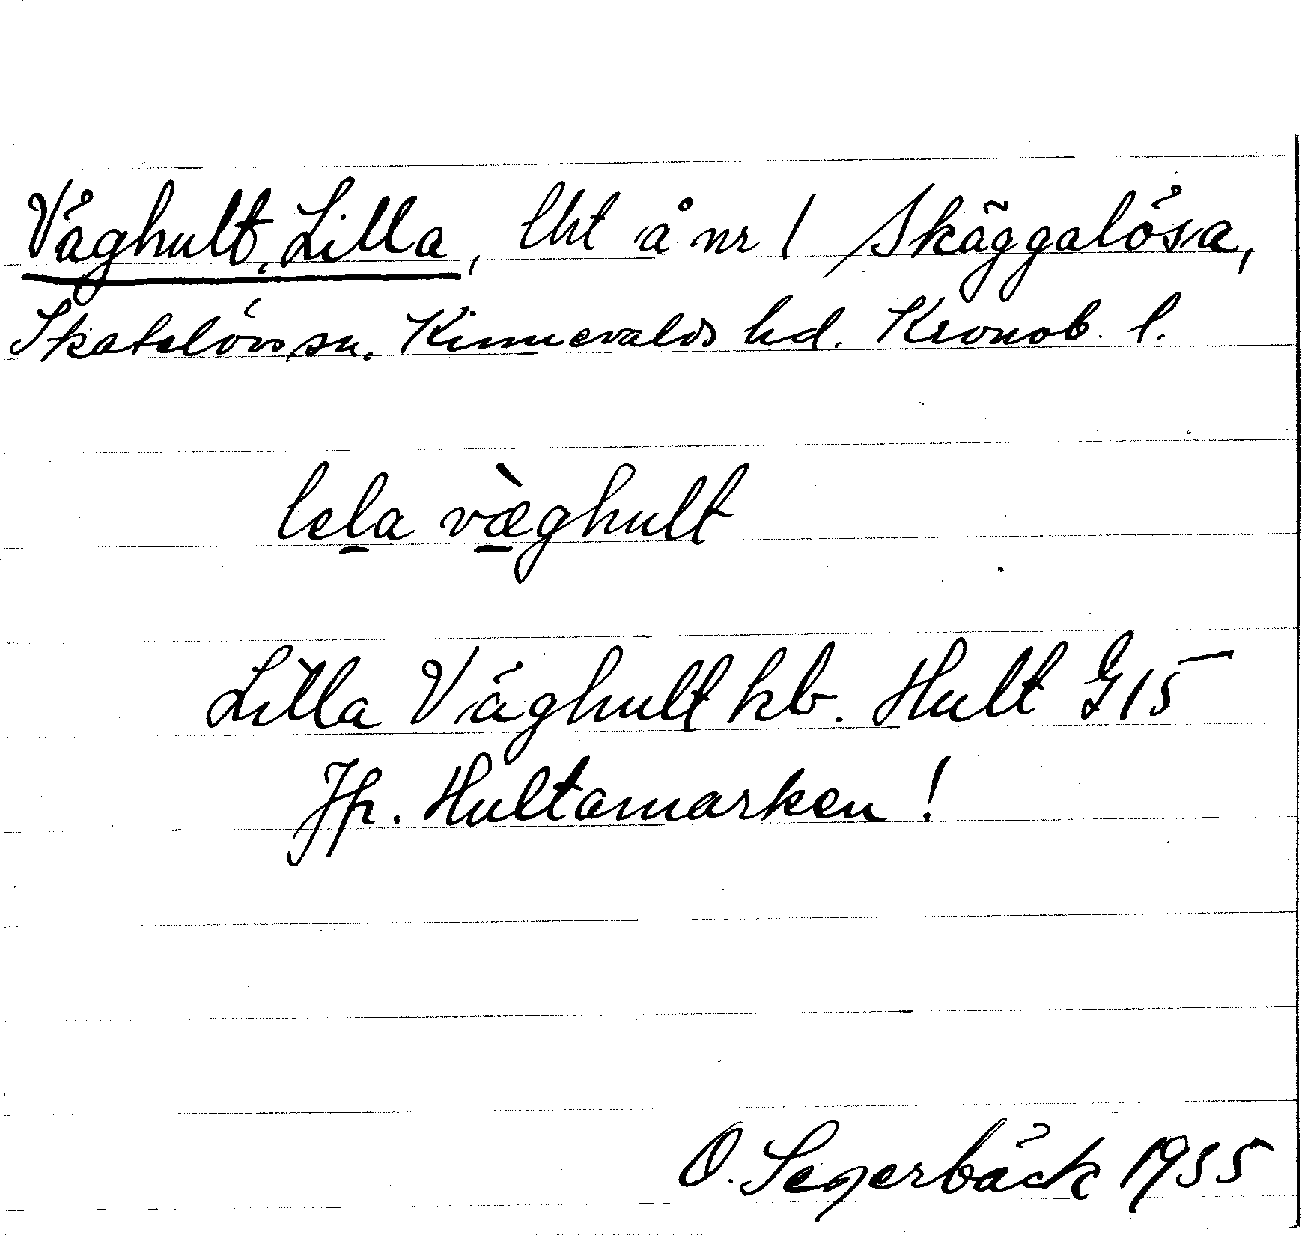 Våghult, Lilla, lht å nr 1 Skäggalösa,
Skatelövs sn. Kinnevalds hd. Kronob. l.
lela væ̀ghult
Lilla Våghult kb. Hult G15
Jfr. Hultamarken!
O. Segerbäck 1935